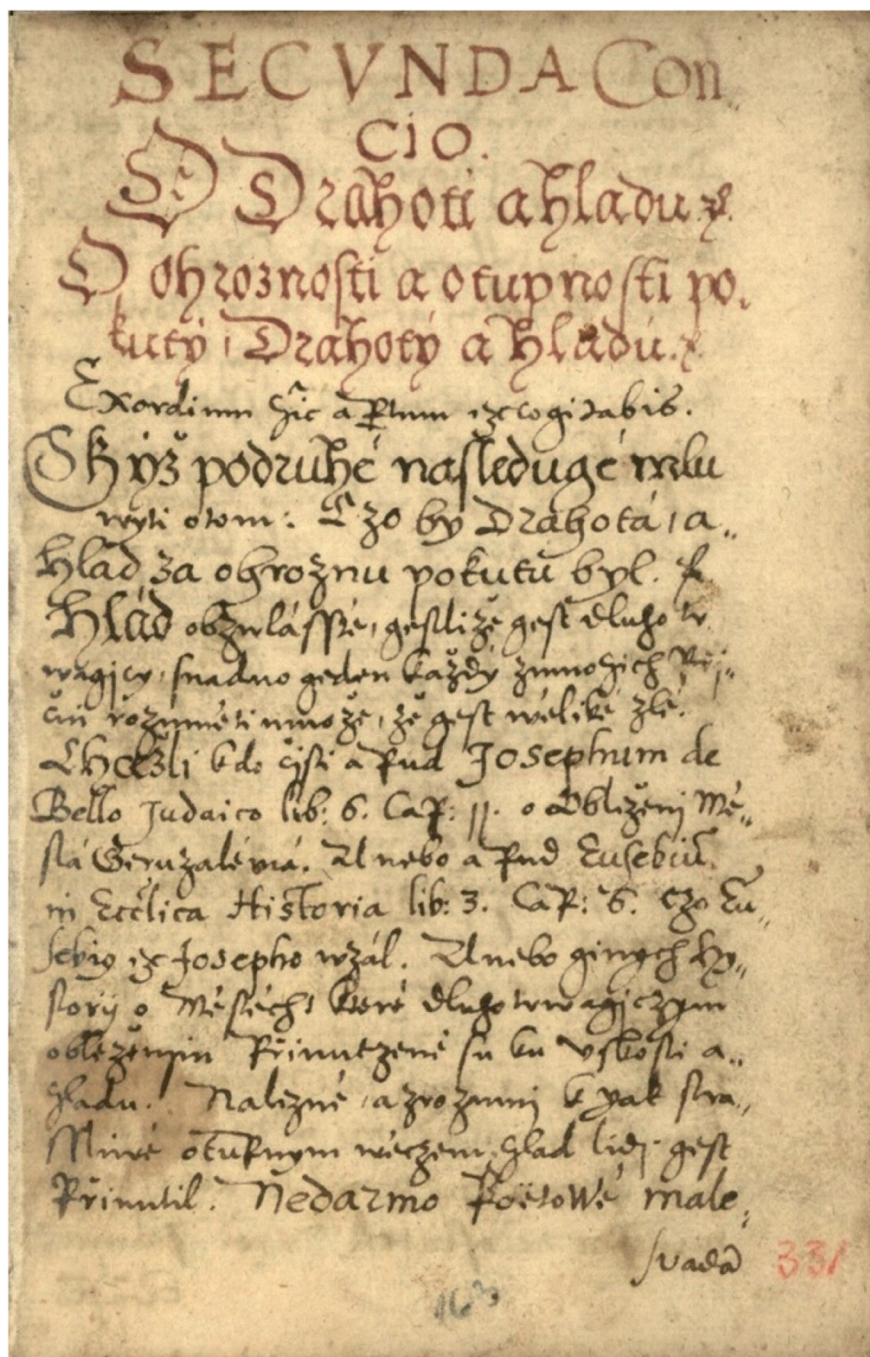 SECVNDA Con
CIO.
O Drahoti a hladu
O ohroznosti a otupnosti po,
kuty, Drahoty a hladu.
Exordium hic aptum excogitabis.
Gkyž podruhé nasledugé mlu
wyti o tom: Czo by Drahota, a,,
hlad, za ohroznu pokutu byl.
Hlad obzwlásstě, gestliže gest dluho tr
wagjcy, snadno geden každy z mnohich Při,,
čin rozuměti može, že gest weliké zlé.
Chczli kdo čjsti apud Josephum de
Bello Judaico lib: 6. Cap: 11. o Obleženj Mě,,
sta Geruzaléma. Anebo apud Eusebiū
in Ecclica Historia lib: 3. Cap: 6. czo Eu,,
sebiꝰ ex Josepho wzál. Anebo ginych hy,,
storij o Městěch, které dluho trwagiczym
obleženjm Přinuczené su ku uskosti a,,
hladu. Nalezné, a zrozumj k yak stra,,
ssliwé otupnym wěczem, hlad lidj gest
Přinutil. Nedarmo Poëtowé male,
svadā
331
163